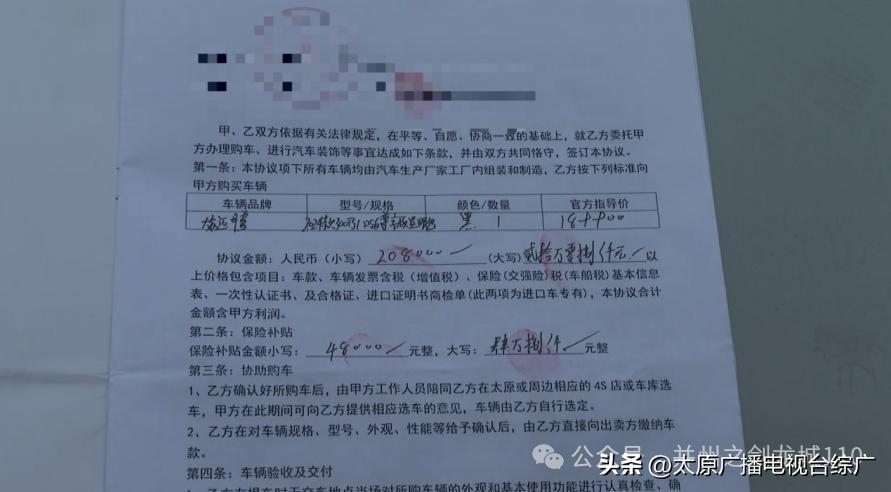 甲、乙双方依据有关法律规定，在平等、自愿、协商一致的基础上，就乙方委托甲
方办理购车、进行汽车装饰等事宜达成如下条款，并由双方共同恪守，签订本协议。
第一条：本协议项下所有车辆均由汽车生产厂家工厂内组装和制造，乙方按下列标准向
甲方购买车辆
车辆品牌 型号/规格 颜色/数量 官方指导价
黑 1
协议金额：人民币（小写）208000 （大写）贰拾万零捌仟元 以
上价格包含项目：车款、车辆发票含税（增值税）、保险(交强险)税(车船税)基本信息
表、一次性认证书、及合格证、进口证明书商检单(此两项为进口车专有)，本协议合计
金额含甲方利润。
第二条：保险补贴
保险补贴金额小写：48000 元整，大写：肆万捌仟 元整
第三条：协助购车
1、乙方确认好所购车后，由甲方工作人员陪同乙方在太原或周边相应的 4S 店或车库选
车，甲方在此期间可向乙方提供相应选车的意见，车辆由乙方自行选定。
2、乙方在对车辆规格、型号、外观、性能等给予确认后，由乙方直接向出卖方缴纳车
款。
第四条：车辆验收及交付
1、乙方在提车时于交车地点当场对所购车辆的外观和基本使用功能进行认真检查、确
公众号 · 并州之剑龙城110
头条 @太原广播电视台综广